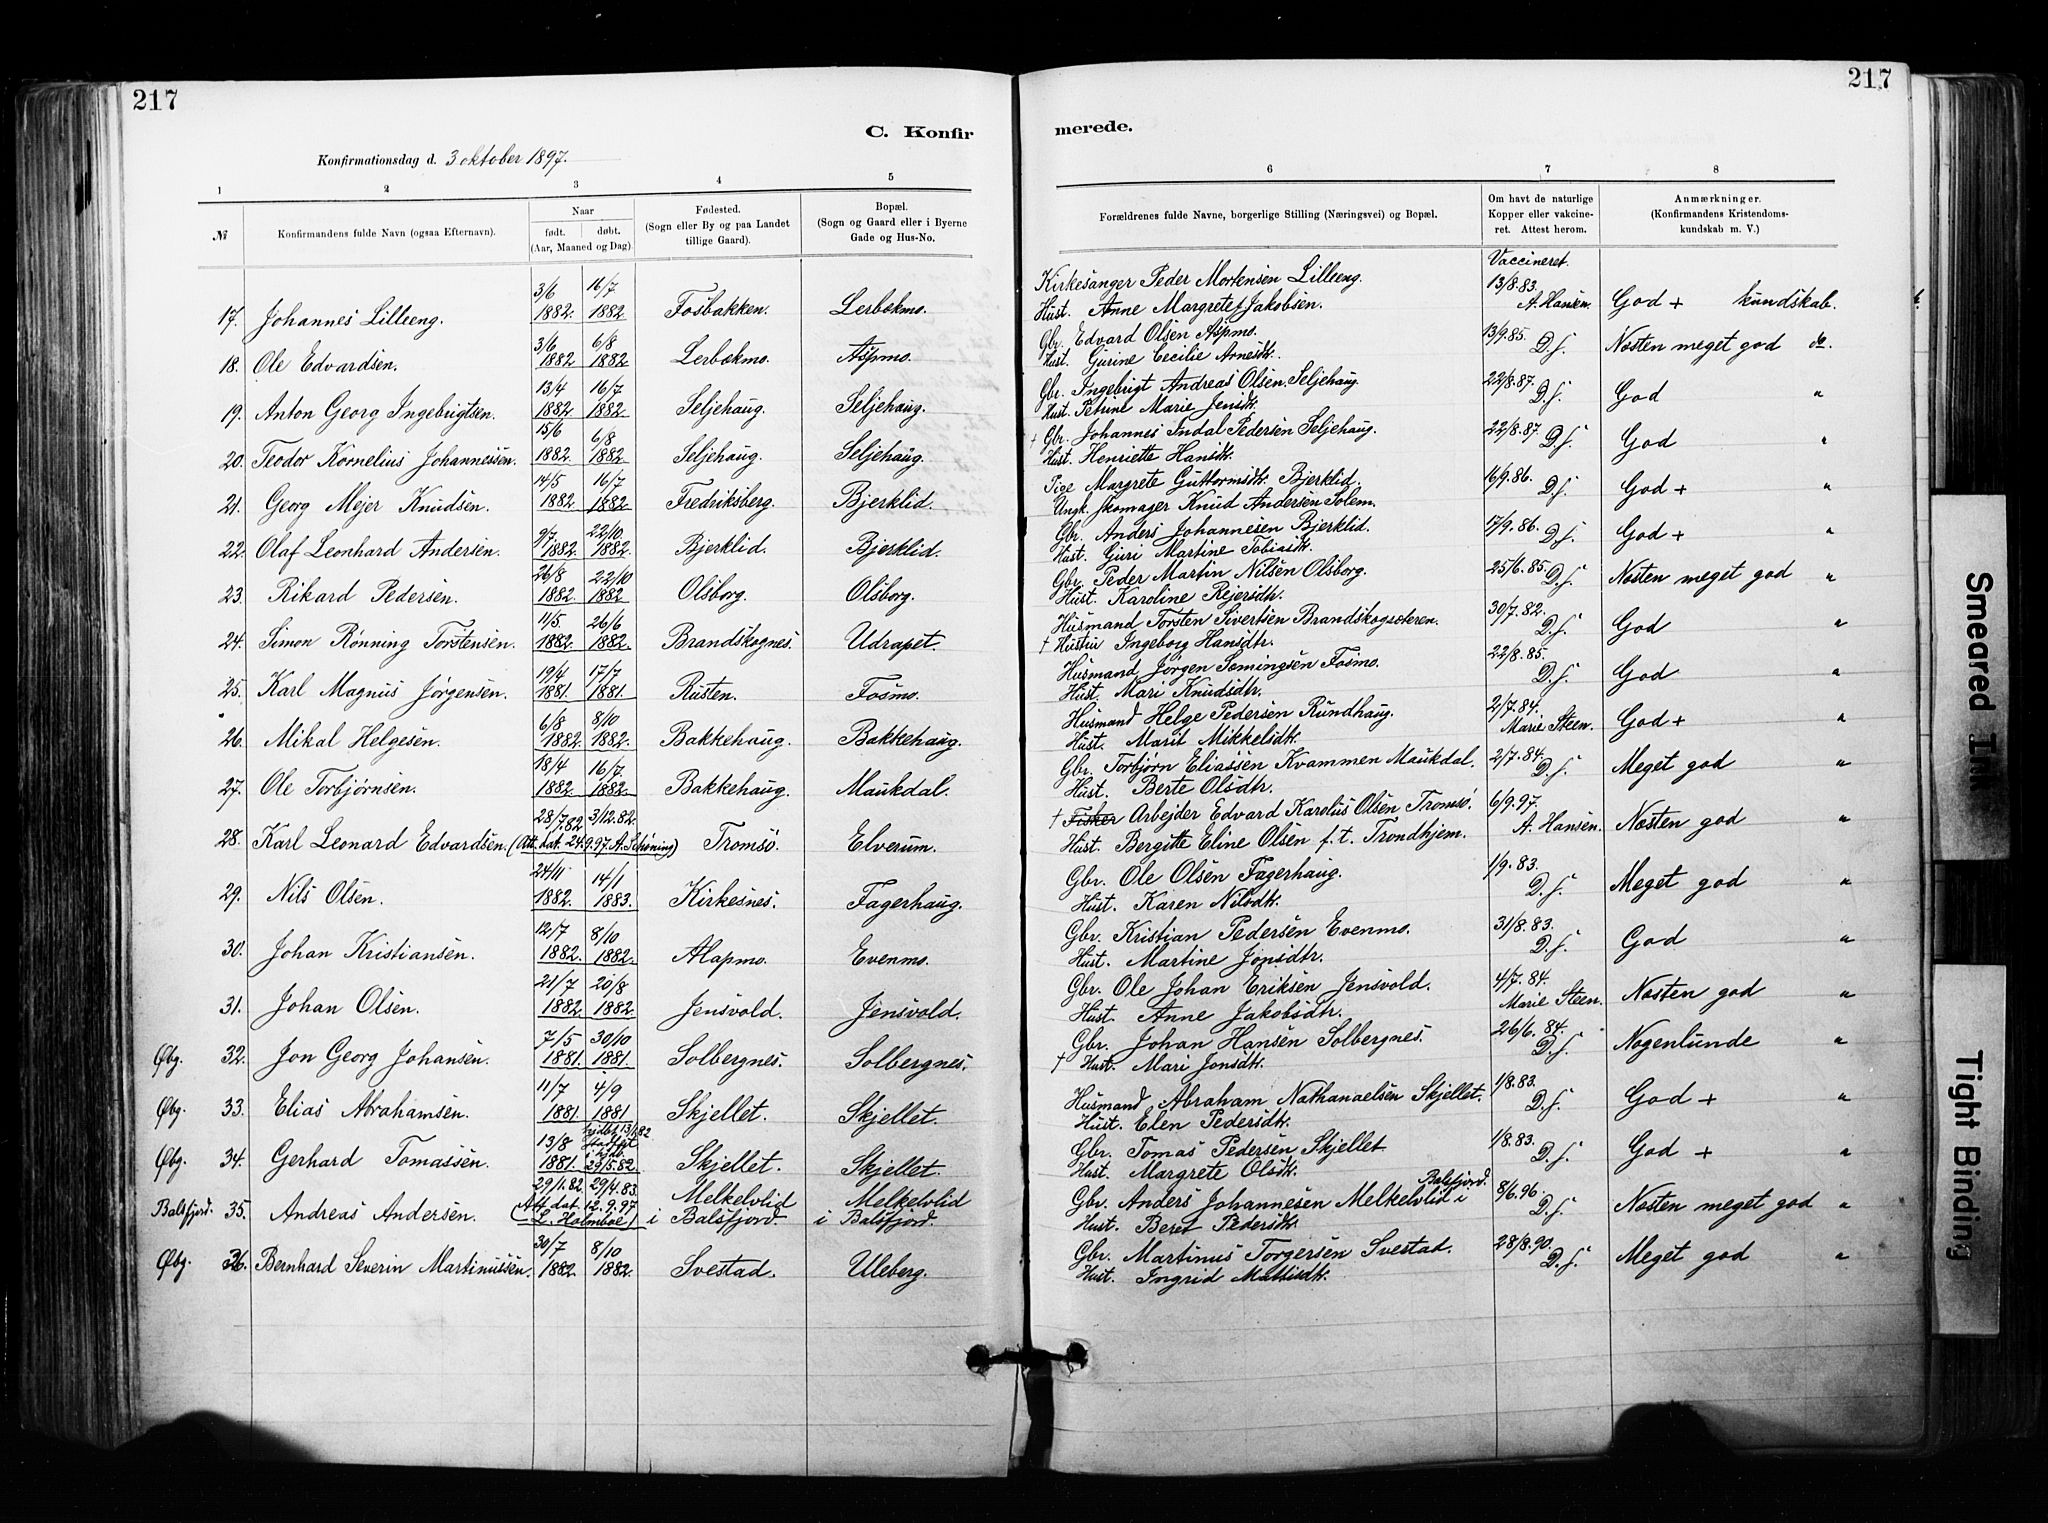 217
217
C. Konfir
merede.
Konfirmationsdag d. 3 oktober 1897.
1 2 3 4 5 6 7 8
№
Konfirmandens fulde Navn (ogsaa Efternavn).
Naar
født. døbt.
(Aar, Maaned og Dag).
Fødested.
(Sogn eller By og paa Landet
tillige Gaard).
Bopæl.
(Sogn og Gaard eller i Byerne
Gade og Hus-No.
Forældrenes fulde Navne, borgerlige Stilling (Næringsvei) og Bopæl.
Om havt de naturlige
Kopper eller vakcine-
ret. Attest herom.
Anmærkninger.
(Konfirmandens Kristendoms-
kundskab m. V.)
Vaccineret.
3/6 16/7 Kirkesanger Peder Mortensen Lilleeng. 13/8.83.
17. Johannes Lilleeng. 1882. 1882. Fosbakken. Lerbekmo. Hust. Anne Margrete Jakobsen. A. Hansen. God + kundskab.
3/6 6/8 Gbr. Edvard Olsen Aspmo. 13/9.85.
18. Ole Edvardsen. 1882. 1882 Lerbekmo. Aspmo. Hust. Gurine Cecilie Arnesdtr. D.s. Næsten meget god do.
13/4 16/7 Gbr. Ingebrigt Andreas Olsen Seljehaug. 22/8.87.
19. Anton Georg Ingebrigtsen. 1882. 1882. Seljehaug. Seljehaug. Hust. Petrine Marie Jensdtr. D.s. God "
15/6 6/8 + Gbr. Johannes Indal Pedersen Seljehaug. 22/8.87.
20. Teodor Kornelius Johannessen. 1882. 1882. Seljehaug. Seljehaug. Hust. Henriette Hansdtr. D.s. God "
14/5 16/7 Pige Margrete Guttormsdtr. Bjerklid. 16/9.86.
21. Georg Mejer Knudsen. 1882. 1882 Fredriksberg. Bjerklid. Ungk. Skomager Knud Andersen Solem. D.s. God + "
9/7 22/10 Gbr. Anders Johannesen Bjerklid. 17/9.86.
22. Olaf Leonhard Andersen. 1882. 1882. Bjerklid. Bjerklid. Hust. Guri Martine Tobiasdtr. D.s. God + "
26/8 22/10 Gbr. Peder Martin Nilsen Olsborg. 25/6.85.
23. Rikard Pedersen. 1882. 1882 Olsborg. Olsborg. Hust. Karoline Rejersdtr. D.s. Næsten meget god "
11/5 26/6 Husmand Torsten Sivertsen Brandskogsæteren. 30/7.82.
24. Simon Rønning Torstensen. 1882. 1882. Brandskognes. Udrapet. + Hustru Ingeborg Hansdtr. D.s. God "
19/4 17/7 Husmand Jørgen Somingsen Fosmo. 22/8.85.
25. Karl Magnus Jørgensen. 1881. 1881. Rusten. Fosmo. Hust. Mari Knudsdtr. D.s. God "
6/8 8/10 Husmand Helge Pedersen Rundhaug. 2/7.84.
26. Mikal Helgesen. 1882. 1882. Bakkehaug. Bakkehaug. Hust. Marit Mikkelsdtr. Marie Steen. God + "
18/4 16/7. Gbr. Torbjørn Eliassen Kvammen Maukdal. 2/7.84.
27. Ole Torbjørnsen. 1882. 1882. Bakkehaug. Maukdal. Hust. Berte Olsdtr. D.s. Meget god "
28/7.82 3/12.82. + Fisker Arbejder Edvard Karelius Olsen Tromsø. 6/9.97.
28. Karl Leonard Edvardsen. (Att. dat. 24.9.97. A. Schøning) Tromsø. Elverum. Hust. Bergitte Eline Olsen f.t. Trondhjem. A. Hansen. Næsten god "
24/11 14/1 Gbr. Ole Olsen Fagerhaug. 1/9.83.
29. Nils Olsen. 1882. 1883. Kirkesnes. Fagerhaug. Hust. Karen Nilsdtr. D.s. Meget god "
12/7 8/10 Gbr. Kristian Pedersen Evenmo. 31/8.83.
30. Johan Kristiansen. 1882. 1882. Alapmo. Evenmo. Hust. Martine Jonsdtr. D.s. God "
21/7 20/8 Gbr. Ole Johan Eriksen Jensvold. 4/7.84.
31. Johan Olsen. 1882. 1882. Jensvold. Jensvold. Hust. Anne Jakobsdtr. Marie Steen. Næsten god "
7/5 30/10 Gbr. Johan Hansen Solbergnes. 26/6.84.
Øbg. 32. Jon Georg Johansen. 1881. 1881. Solbergnes. Solbergnes. + Hust. Mari Jonsdtr. D.s. Nogenlunde "
11/7 4/9 Husmand Abraham Nathanaelsen Skjellet. 1/8.83.
Øbg. 33. Elias Abrahamsen. 1881. 1881 Skjellet. Skjellet. Hust. Elen Pedersdtr. D.s. God + "
13/8 Gbr. Tomas Pedersen Skjellet 1/8.83.
Øbg. 34. Gerhard Tomassen. 1881. 29/5.82. Skjellet. Skjellet. Hust. Margrete Olsdtr. D.s. God + "
29/1.82. 29/4.83. Melkelvlid Melkelvlid Gbr. Anders Johannesen Melkelvlid i Balsfjord. 8/6.96.
Balsfjord. 35. Andreas Andersen. (Att. dat. 12.9.97 L. Holmboe) i Balsfjord. i Balsfjord. Hust. Beret Pedersdtr. D.s. Næsten meget god "
30/7 8/10 Gbr. Martinus Torgersen Svestad. 28/8.90.
Øbg. 36. Bernhard Severin Martinussen. 1882. 1882. Svestad. Uleberg. Hust. Ingrid Mattisdtr. D.s. Meget god "
Smeared Ink
Tight Binding